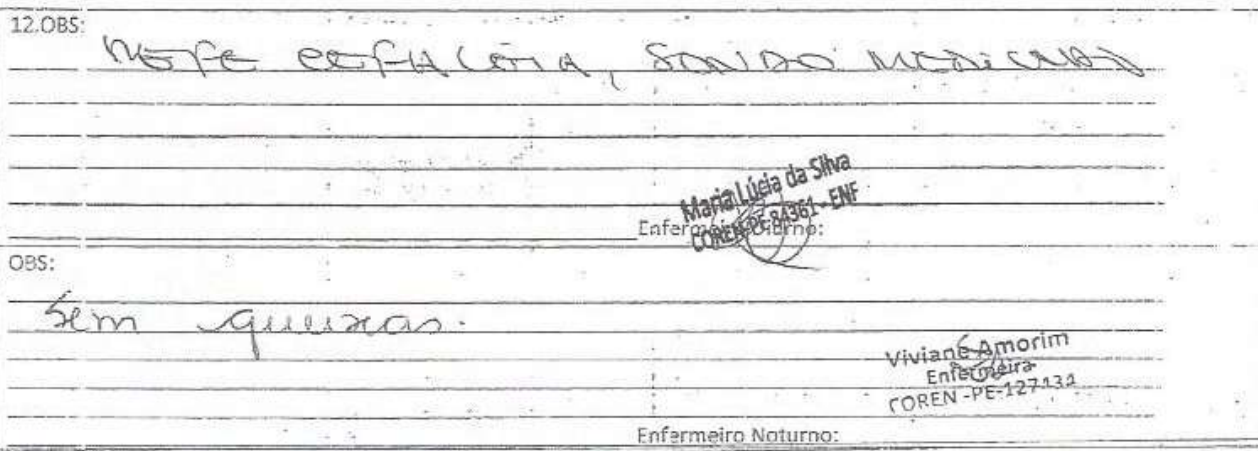 12.OBS:
REFE CEFALEIA, SENDO MEDICADA
Maria Lúcia da Silva
COREN-PE-84361 - ENF
Enfermeiro Diurno:
OBS:
Sem queixas.
Viviane Amorim
Enfermeira
COREN-PE-127131
Enfermeiro Noturno: